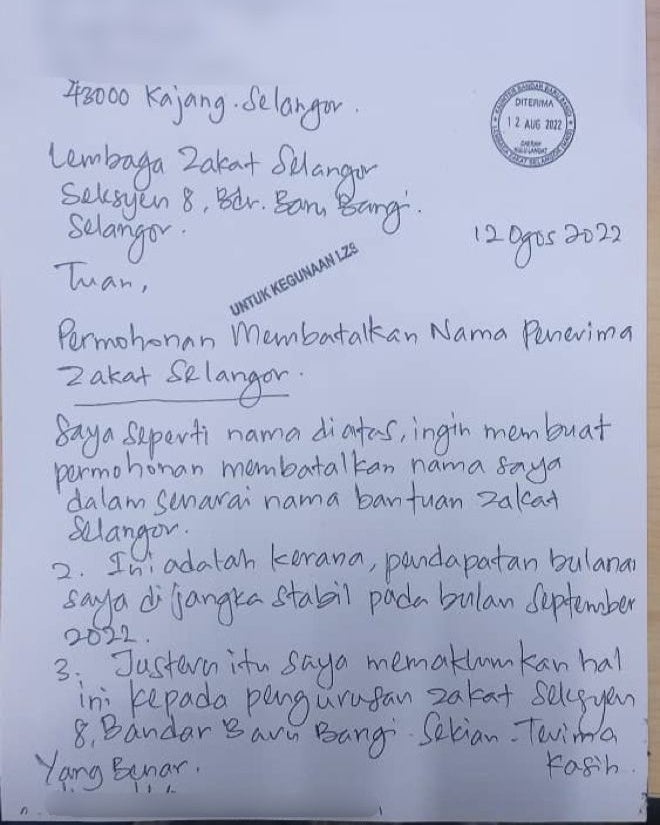 43000 Kajang. Selangor.
DITERIMA
12 AUG 2022
Lembaga Zakat Selangor
Seksyen 8, Bdr. Baru Bangi.
Selangor.
12 Ogos 2022
Tuan,
UNTUK KEGUNAAN LZS
Permohonan Membatalkan Nama Penerima
Zakat Selangor.
Saya seperti nama diatas, ingin membuat
permohonan membatalkan nama saya
dalam senarai nama bantuan zakat
Selangor.
2. Ini adalah kerana, pendapatan bulanan
saya di jangka stabil pada bulan September
2022.
3. Justeru itu saya memaklumkan hal
ini kepada pengurusan zakat Seksyen
8, Bandar Baru Bangi. Sekian. Terima
Kasih.
Yang Benar.